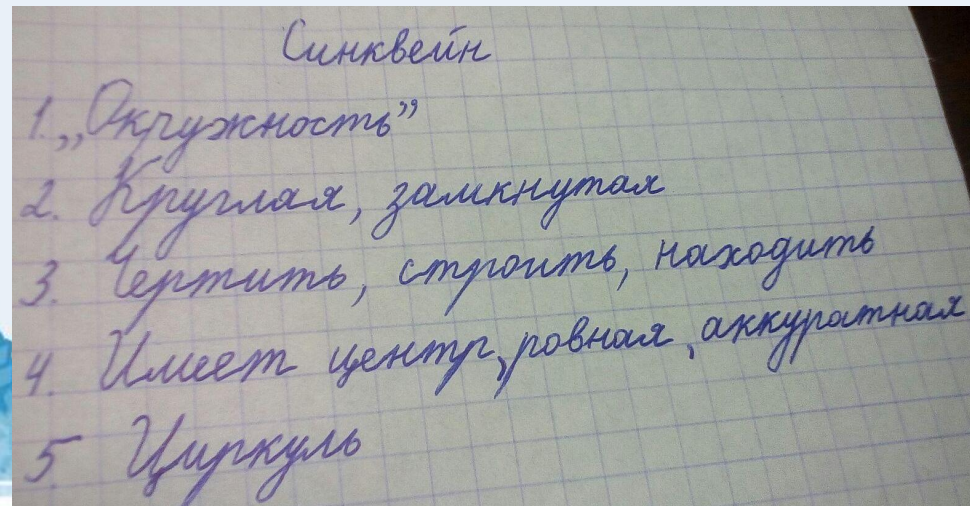 Синквейн
1. „Окружность”
2. Круглая, замкнутая
3. Чертить, строить, находить
4. Имеет центр, ровная, аккуратная
5 Циркуль